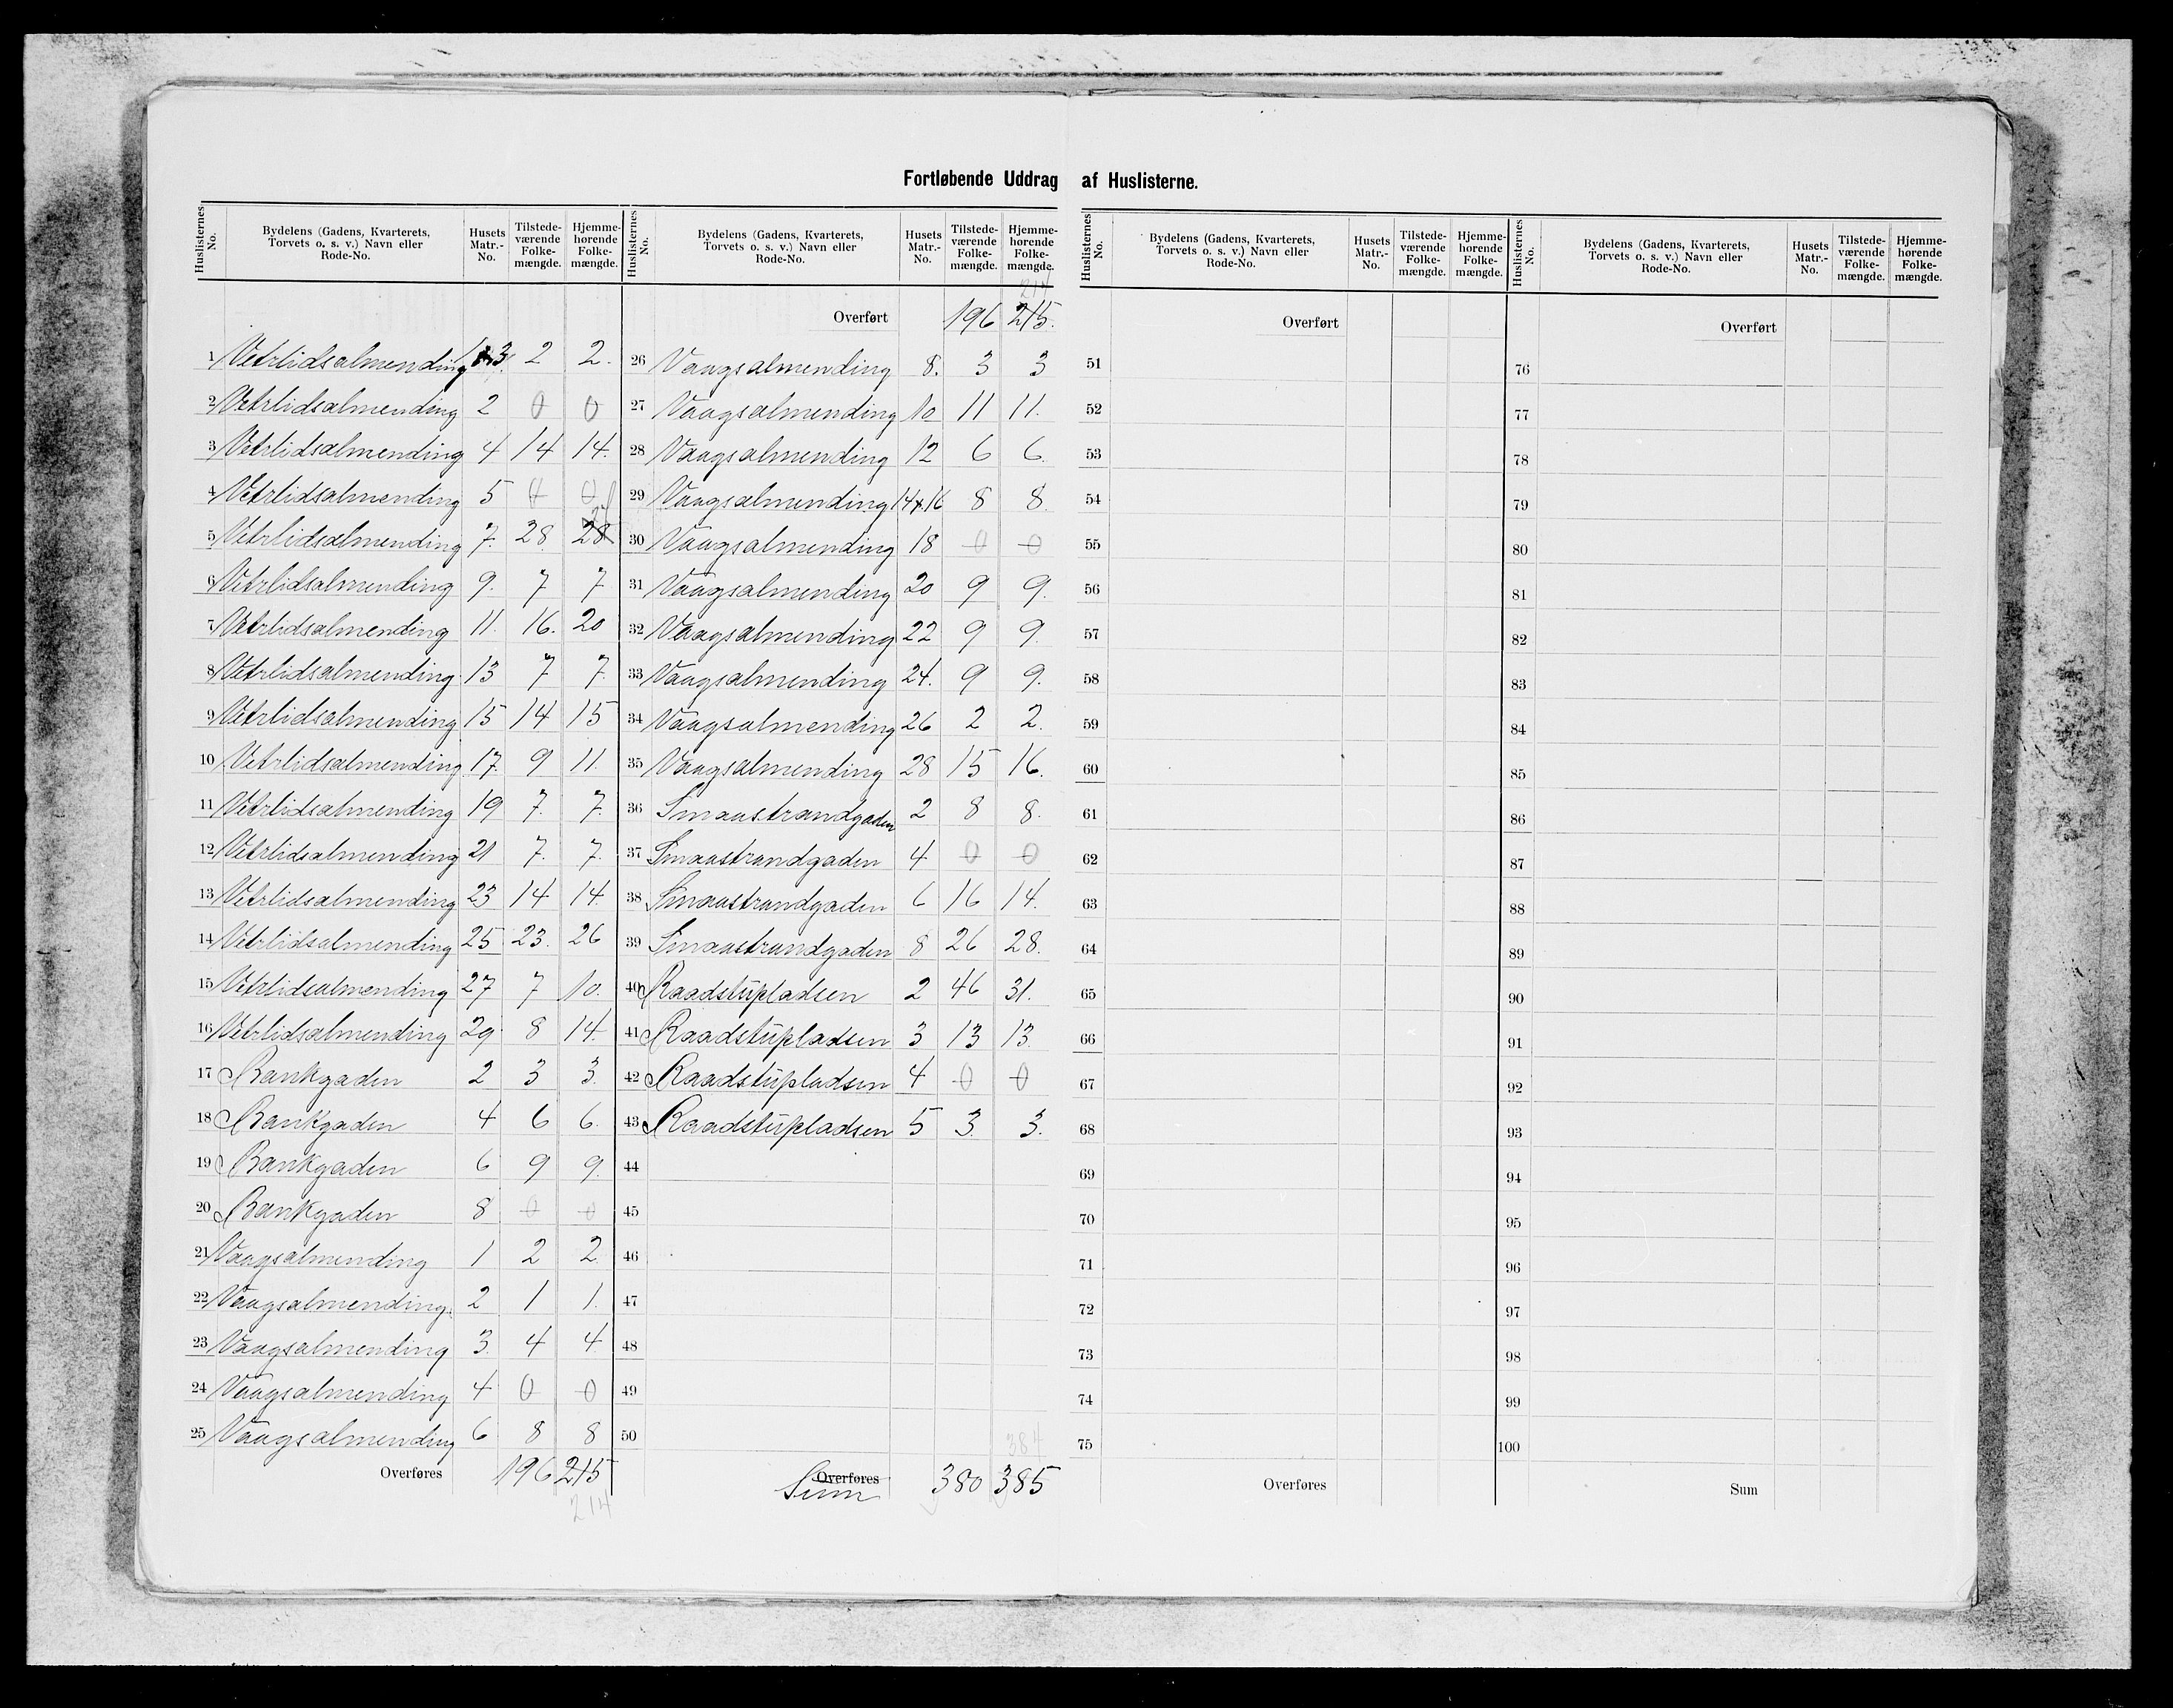 Fortløbende Uddrag af Huslisterne.
Huslisternes No. Bydelens (Gadens, Kvarterets, Torvets o. s. v.) Navn eller Rode-No. Husets Matr.-No. Tilstedeværende Folkemængde. Hjemmehørende Folkemængde.
1 Vetrlidsalmending 1 & 3 2 2.
2 Vetrlidsalmending 2 0 0
3 Vetrlidsalmending 4 14 14.
4 Vetrlidsalmending 5 0 0
5 Vetrlidsalmending 7. 28. 28 27
6 Vetrlidsalmending 9. 7 7
7 Vetrlidsalmending 11. 16. 20
8 Vetrlidsalmending 13 7 7.
9 Vetrlidsalmending 15 14 15
10 Vetrlidsalmending 17. 9 11.
11 Vetrlidsalmending 19 7. 7.
12 Vetrlidsalmending 21 7. 7.
13 Vetrlidsalmending 23 14 14
14 Vetrlidsalmending 25 23. 26
15 Vetrlidsalmending 27 7 10.
16 Vetrlidsalmending 29 8 14.
17 Bankgaden 2 3 3.
18 Bankgaden 4 6 6.
19 Bankgaden 6 9 9.
20 Bankgaden 8 0 0
21 Vaagsalmending 1 2 2
22 Vaagsalmending. 2 1 1.
23 Vaagsalmending 3. 4 4
24 Vaagsalmending 4 0 0
25 Vaagsalmending 6 8 8
Overføres 196 215
214
Huslisternes No. Bydelens (Gadens, Kvarterets, Torvets o. s. v.) Navn eller Rode-No. Husets Matr.-No. Tilstedeværende Folkemængde. Hjemmehørende Folkemængde.
214
Overført 196 215.
26 Vaagsalmending 8. 3 3
27 Vaagsalmending 10 11 11.
28 Vaagsalmending 12 6 6.
29 Vaagsalmending 14 & 16 8 8.
30 Vaagsalmending 18 0 0
31 Vaagsalmending 20 9 9.
32 Vaagsalmending 22 9 9.
33 Vaagsalmending 24. 9 9.
34 Vaagsalmending 26 2 2.
35 Vaagsalmending 28 15 16.
36 Smaastrandgaden 2 8 8.
37 Smaastrandgaden 4 0 0
38 Smaastrandgaden 6 16 14.
39 Smaastrandgaden 8 26 28.
40 Raadstupladsen 2 46 31.
41 Raadstupladsen 3 13 13.
42 Raadstupladsen 4 0 0
43 Raadstupladsen 5 3. 3.
44
45
46
47
48
49
50
384
Overføres
Sum 380 385
Huslisternes No. Bydelens (Gadens, Kvarterets, Torvets o. s. v.) Navn eller Rode-No. Husets Matr.-No. Tilstedeværende Folkemængde. Hjemmehørende Folkemængde.
Overført
51
52
53
54
55
56
57
58
59
60
61
62
63
64
65
66
67
68
69
70
71
72
73
74
75
Overføres
Huslisternes No. Bydelens (Gadens, Kvarterets, Torvets o. s. v.) Navn eller Rode-No. Husets Matr.-No. Tilstedeværende Folkemængde. Hjemmehørende Folkemængde.
Overført
76
77
78
79
80
81
82
83
84
85
86
87
88
89
90
91
92
93
94
95
96
97
98
99
100
Sum